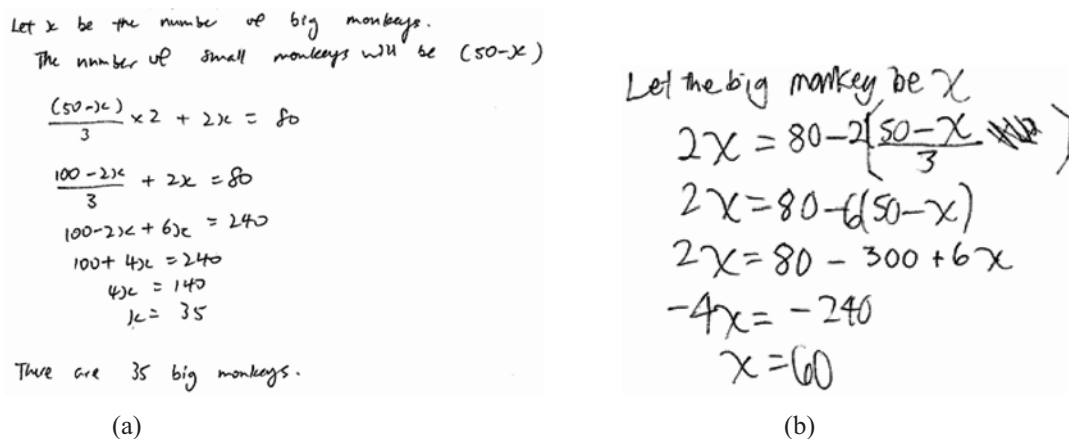 Let x be the number of big monkeys.
The number of small monkeys will be (50-x)
(50-x)/3 × 2 + 2x = 80
(100-2x)/3 + 2x = 80
100-2x + 6x = 240
100 + 4x = 240
4x = 140
x = 35
There are 35 big monkeys.
(a)
Let the big monkey be x
2x = 80-2((50-x)/3)
2x = 80-6(50-x)
2x = 80 - 300 + 6x
-4x = -240
x = 60
(b)